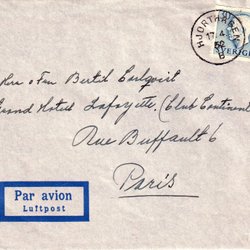 HJORTHAGEN
17.4
52
B
SVERIGE
Herr o Fru Bertil Carlqvist
Grand Hotel Lafayette (Club Continental
Rue Buffault 6
Paris
Par avion
Luftpost